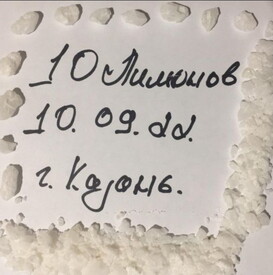 10 Лимонов
10. 09. 22.
г. Казань.